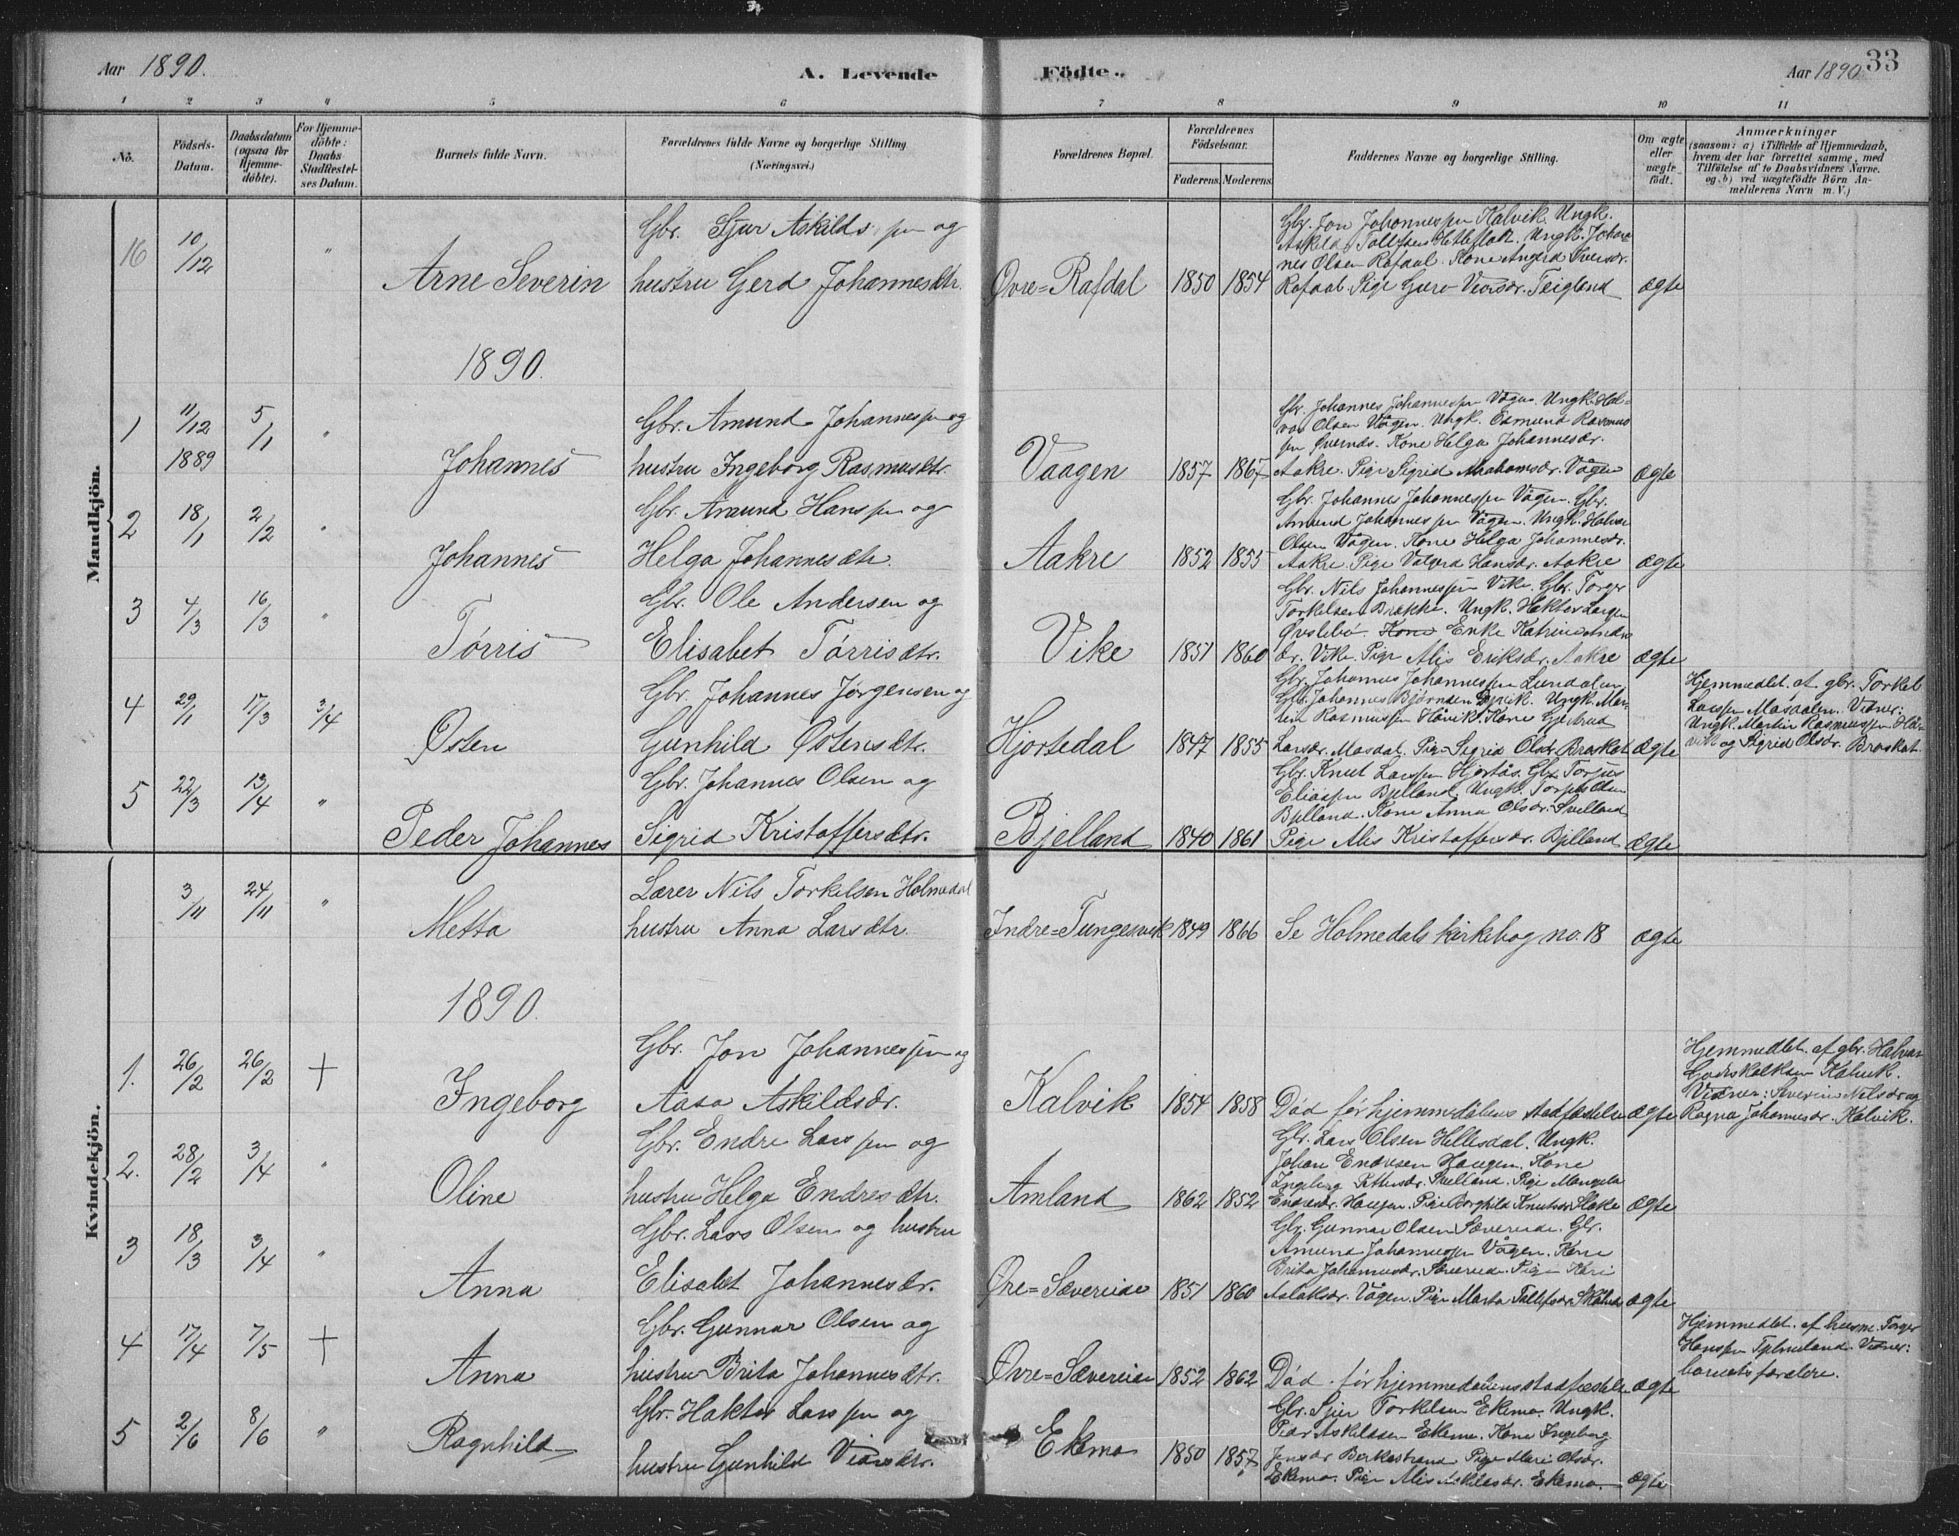 Aar 1890.
A. Levende Födte.
Aar 1890 33
1 2 3 4 5 6 7 8 9 10 11
No.
Födsels-
Datum.
Daabsdatum
(ogsaa for
Hjemme-
döbte).
For Hjemme-
döbte:
Daabs
Stadfæstel-
ses Datum.
Barnets fulde Navn.
Forældrenes fulde Navne og borgerlige Stilling
(Næringsvei.)
Forældrenes Bopæl.
Forældrenes
Födselsaar.
Faderens. Moderens.
Faddernes Navne og borgerlige Stilling.
Om ægte
eller
uægte
födt.
Anmærkninger
(saasom: a) i Tilfælde af Hjemmedaab,
hvem der har forrettet samme, med
Tilföielse af to Daabsvidners Navne,
og b) ved uægtefödte Börn An-
melderens Navn m. V.)
Mandkjön.
16 10/12 "
Arne Severin
Gbr. Sjur Askilds sen og
hustru Gerd Johannesdtr.
Øvre=Rafdal 1850 1854
Gbr. Jon Johannessen Kalvik. Ungk.
Askild Tollefsen Hetleflot. Ungk. Johan-
nes Olsen Rafdal. Kone Angrid Iversdr.
Rafdal. Pige Guro Viersdr. Teigland
ægte
1890.
1 11/12 1889 5/1 "
Johannes
Gbr. Amund Johannessen og
hustru Ingeborg Rasmusdtr.
Vaagen 1857 1867
Gbr. Johannes Johannessen Vågen. Ungk. Hal-
vor Olsen Vågen. Ungk. Edmund Rasmus-
sen Kone Helga Johannesdr.
Aakre. Pige Sigrid Abrahamsdr. Vågen
ægte
2 18/1 2/2 "
Johannes
Gbr. Amund Hanssen og
Helga Johannesdtr.
Aakre 1852 1855
Gbr. Johannes Johannessen Vågen. Gbr.
Amund Johannessen Vågen. Ungk. Halvor
Olsen Vågen. Kone Helga Johannesdr.
Aakre. Pige Valgerd Hansdr. Aakre
ægte
3 4/3 16/3 "
Tørris
Gbr. Ole Andersen og
Elisabet Tørrisdtr.
Vike 1851 1860
Gbr. Nils Johannessen Vike. Gbr. Torger
Torkelsen Brekke. Ungk. Haktor Larsen
Øvslebø. Kone Enke Katrine Anders-
dr. Vike. Pige Alis Eriksdr. Aakre
ægte
4 29/1 17/3 3/4
Østen
Gbr. Johannes Jørgensen og
Gunhild Østensdtr.
Hjortedal 1847 1855
Gbr. Johannes Johannessen Lundalen
Gbr. Johannes Bjørnsen Ungk. Mar-
tin Rasmussen Håvik. Kone Gjertrud
Larsdr. Masdal. Pige Sigrid Olsdr. Braskat
ægte
Hjemmedbt. af gbr. Torkel
Larssen Masdalen. Vidner:
Ungk. Martin Rasmussen Hå-
vik og Sigrid Olsdr. Braskat.
5 22/3 13/4 "
Peder Johannes
Gbr. Johannes Olsen og
Sigrid Kristoffersdtr.
Bjelland 1840 1861
Gbr. Knut Larssen Hjortås. Gbr. Torjus
Eliassen Bjelland. Ungk. Torjus Olsen
Bjelland. Kone Anna Olsdr. Svelland
Pige Alis Kristoffersdr. Bjelland
ægte
Kvindekjön.
3/11 24/11 "
Metta
Lærer Nils Torkelsen Holmedal
hustru Anna Larsdtr.
Indre=Tungesvik 1849 1866
Se Holmedals kirkebog no. 18
ægte
1890.
1. 26/2 26/2 +
Ingeborg
Gbr. Jon Johannessen og
Aasa Askildsdr.
Kalvik 1854 1858
Død før hjemmedåbens stadfæstelse
ægte
Hjemmedbt. af gbr. Halvor
Godskalksen Kalvik.
Vidner: Severine Nilsdr og
Ragna Johannesdr. Kalvik.
2. 28/2 3/4 "
Oline
Gbr. Endre Larssen og
hustru Helga Endresdtr.
Amland 1862 1852
Gbr. Lars Olsen Hellesdal. Ungk.
Johan Endresen Haugen. Kone
Ingeborg Pettersdr. Svelland. Pige Mangela
Endresdr. Haugen. Pige Borghild Knutsdr. Stokke
ægte
3 18/3 3/4 "
Anna
Gbr. Lars Olsen og hustru
Elisabet Johannesdr.
Øvre=Sævereide 1851 1860
Gbr. Gunnar Olsen Sævereide. Gbr.
Amund Johannessen Vågen. Kone
Brita Johannesdr. Sævereide. Pige Kari
Aslaksdr. Vågen. Pige Marta Tollefsdr.
ægte
4 17/4 7/5 +
Anna
Gbr. Gunnar Olsen og
hustru Brita Johannesdtr.
Øvre=Sævereide 1852 1862
Død før hjemmedåbens stadfæstelse
ægte
Hjemmedbt. af husm. Torger
Hanssen Tjelmeland. Vidner:
barnets foreldre.
5 2/6 8/6 "
Ragnhild
Gbr. Haktor Larssen og
hustru Gunhild Viersdtr.
Ekemo 1850 1857
Gbr. Sjur Torkelsen Ekemo. Ungk.
Peder Askildsen Ekemo. Kone Ingeborg
Jensdr Berkestrand Pige Mari Olsdr.
Ekemo. Pige Alis Askildsdr. Ekemo.
ægte